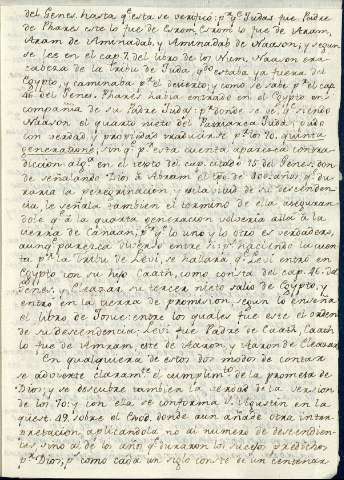 del Genes. hasta qe esta se verificó; pr qe Judas fue Padre
de Phares: este lo fue de Esrom, Esrom lo fue de Aram,
Aram de Aminadab, y Aminadab de Naason, y segun
se lee en el cap. 7. del libro de los Num. Naason era
cabeza de la Tribu de Juda qdo estaba ya fuera del
Egypto, y caminaba pr el desierto, y como se sabe pr el cap.
46 del Genes. Phares habia entrado en el Egypto en
compañia de su Padre Juda: pr donde siendo
Naason el quarto nieto del Patriarca Juda, pudo
con verdad y propiedad traducirse pr los 70. quinta
generatione, sin qe pr esta cuenta aparezca contra-
diccion alga en el texto del cap. citado 15 del Genes. don
de señalando Dios à Abram el tpo de 400 años qe du-
raria la peregrinacion y esclavitud de su descenden-
cia, le señala tambien el termino de ella aseguran-
dole qe à la quarta generacion volveria allà à la
tierra de Canaan; pr qe lo uno y lo otro es verdadero,
aunqe parezca diverso entre si: pr haciendo la cuen-
ta pr la Tribu de Levi, se hallarà qe Levi entrò en
Egypto con su hijo Caath, como consta del cap. 46. del
Genes. y Eleazar su tercer nieto saliò de Egypto, y
entrò en la tierra de promision, segun lo enseña
el libro de Josue: entre los quales fue este el orden
de su descendencia: Levi fue Padre de Caath, Caath
lo fue de Amram, este de Aaron, y Aaron de Eleazar
En qualquiera de estos dos modos de contar
se advierte claramte el cumplimto de la promesa de
Dios, y se descubre tambien la verdad de la version
de los 70: y con ella se conforma S. Agustin en la
qüest. 49. sobre el Exod. donde aun añade otra inter-
pretacion, aplicandola no al numero de descendien-
tes, sino al de los años qe duraron los sucesos predichos
pr Dios, ps como cada un siglo conste de un centenar